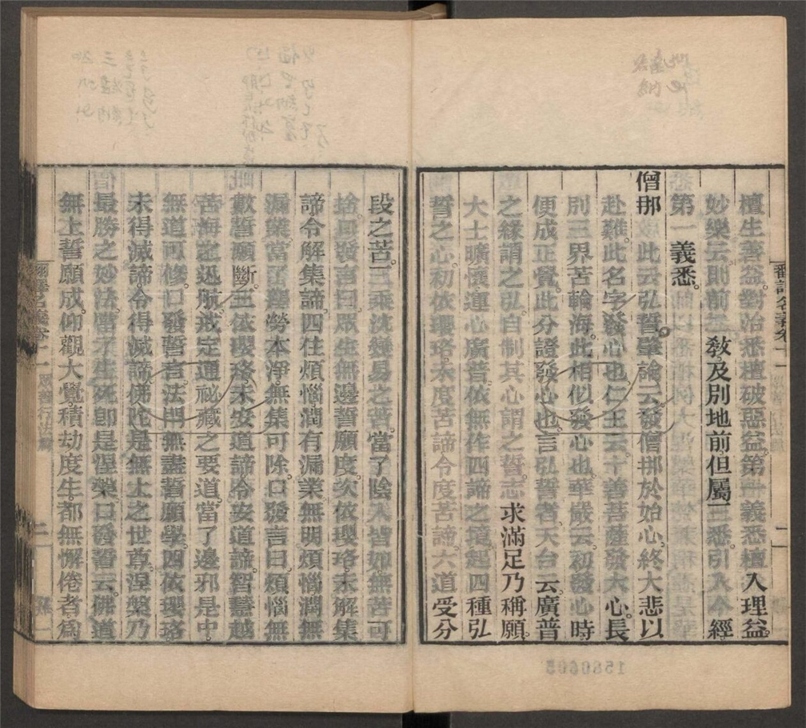 檀生善益對治悉檀破惡益第一義悉檀入理益
妙樂云則前二教及別地前但屬三悉引入今經
第一義悉
僧那 此云弘誓肇論云發僧那於始心終大悲以
赴難此名字發心也仁王云十善菩薩發大心長
別三界苦輪海此相似發心也華嚴云初發心時
便成正覺此分證發心也言弘誓者天台云廣普
之緣謂之弘自制其心謂之誓志求滿足乃稱願
大士曠懷運心廣普依無作四諦之境起四種弘
誓之心初依瓔珞未度苦諦令度苦諦六道受分
段之苦三乘沈變易之苦當了陰入皆如無苦可
捨口發言曰眾生無邊誓願度次依瓔珞未解集
諦令解集諦四住煩惱潤有漏業無明煩惱潤無
漏業當了塵勞本淨無集可除口發言曰煩惱無
數誓願斷三依瓔珞未安道諦令安道諦智慧越
苦海之迅航戒定通祕藏之要道當了邊邪是中
無道可修口發誓言法門無盡誓願學四依瓔珞
未得滅諦令得滅諦佛陀是無上之世尊涅槃乃
最勝之妙法當了生死即是涅槃口發誓云佛道
無上誓願成仰觀大覺積劫度生都無懈倦者為
翻譯名義卷十一
二
翻譯名義卷十一
二
1580605